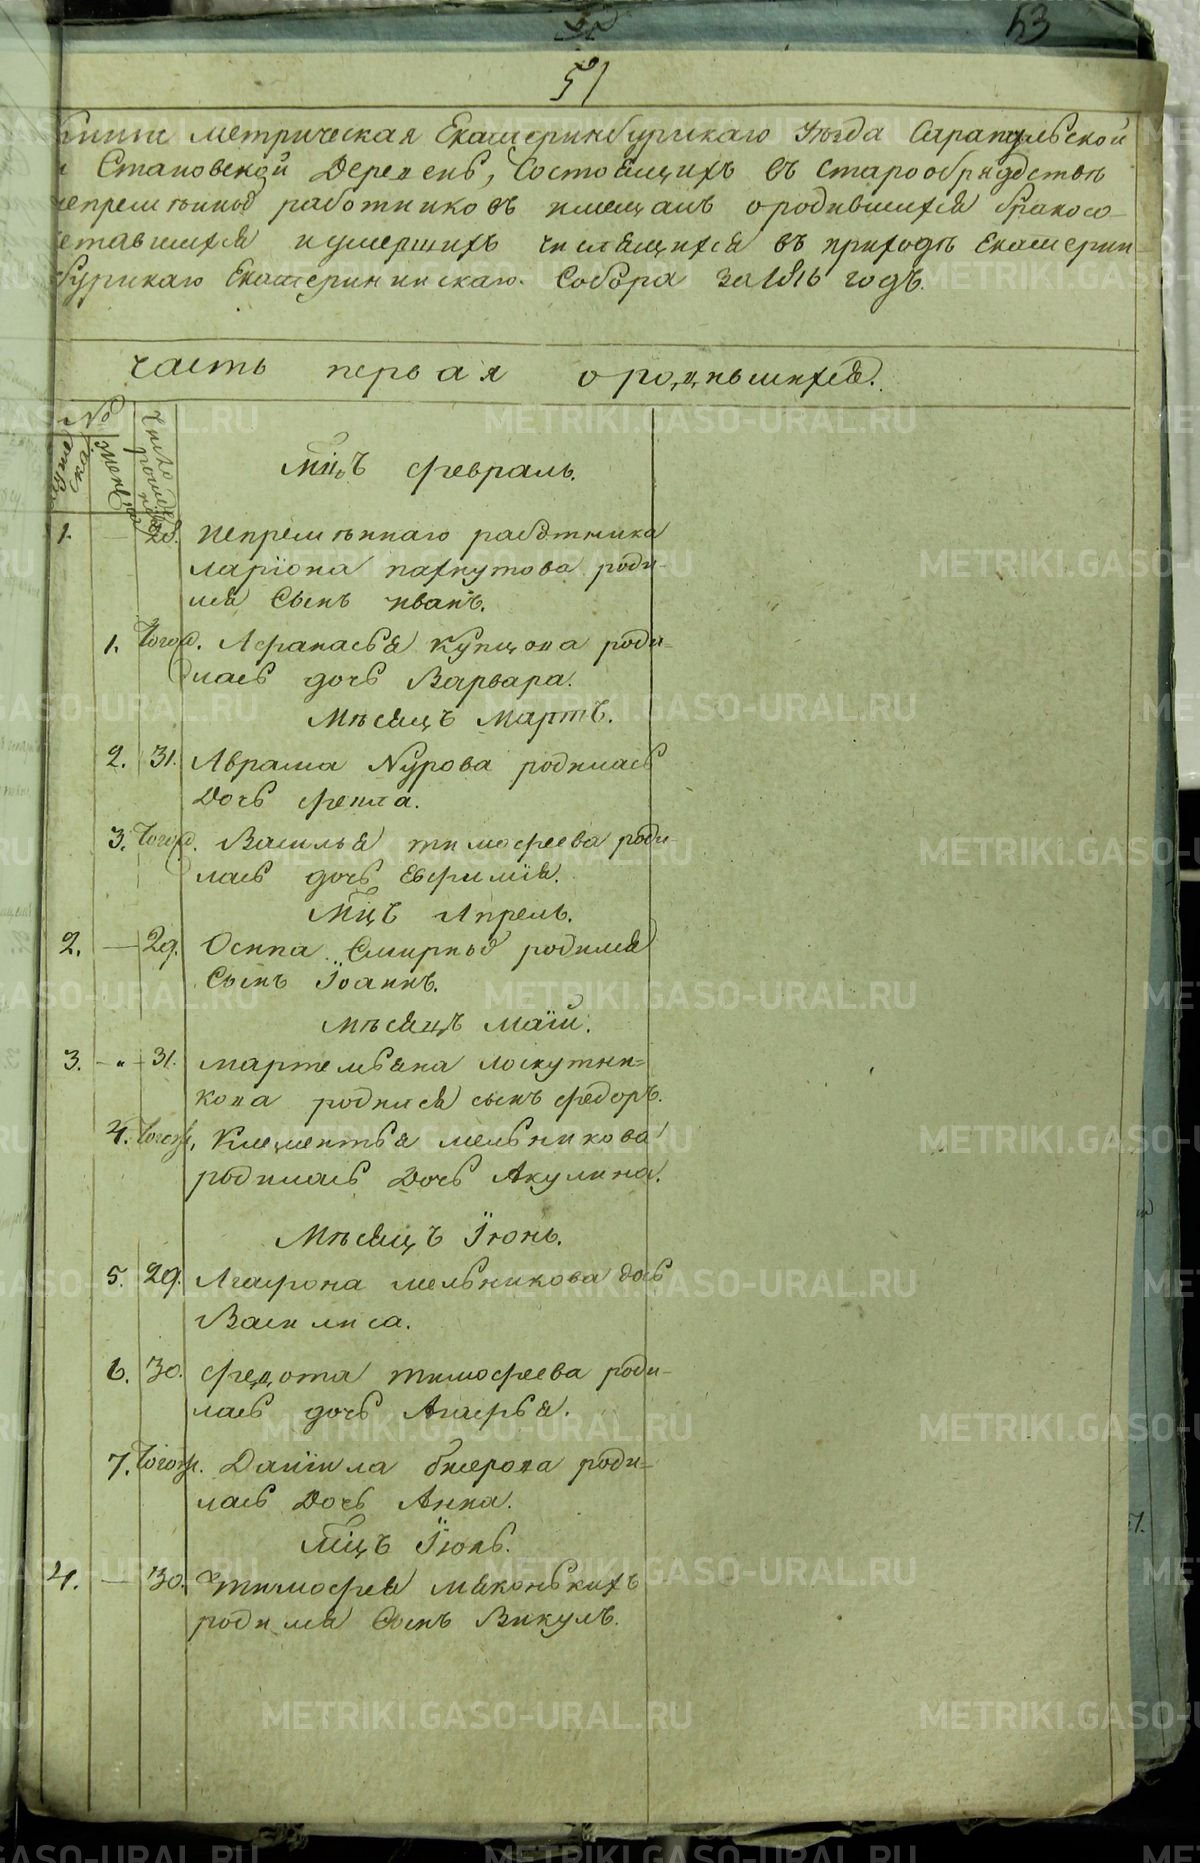 53
51
Книга метрическая Екатеринбурскаго Уѣзда Сарапульской
и Становской Деревень, Состоящихъ въ Старообрядствѣ
непремѣнныхъ работниковъ и мещанъ о родившихся бракосо-
четавшихся и умершихъ числящихся въ приходѣ Екатерин
бурскаго Екатерининскаго Собора за 1816 годъ.
часть первая о родившихся.
№ Число рожденія
мужеска. женска
Мцъ февраль.
1. — 28. непремѣннаго работника
ларіона пахнутова роди-
лся Сынъ иванъ.
1. Тогожд. Афанасья Купцова роди-
лась дочь Варвара.
Мѣсяцъ Мартъ.
2. 31. Аврама Нурова родилась
Дочь фекла.
3. Тогожд. Василья тимофеева роди-
лась дочь Евфимія.
Мцъ Апрель.
2. — 29. Осипа Смирныхъ родился
Сынъ Іоаннъ.
мѣсяцъ маій.
3. — 31. мартемьяна лоскутни-
кова родился сынъ федоръ.
4. Тогож. Клементья мельникова
родилась Дочь Акулина.
Мѣсяцъ Іюнь.
5. 29. Агафона мельникова дочь
Василиса.
6. 30. федота тимофеева роди-
лась дочь Агафья.
7. Тогож. Даніила роди-
лась Дочь Анна.
Мцъ Іюль.
4. — 30. тимофея мяконькихъ
родился Сынъ Викулъ.
METRIKI.GASO-URAL.RU